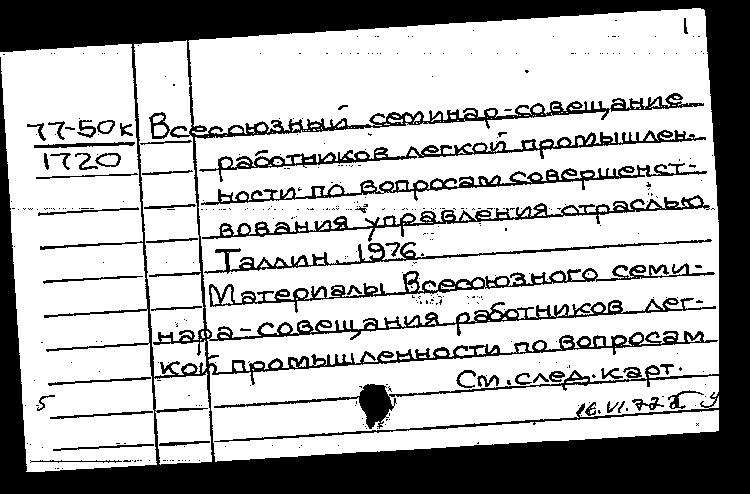 1
77-50к Всесоюзный семинар-совещание
1720 работников легкой промышлен-
ности по вопросам совершенст-
вования управления отраслью
Таллин. 1976.
Материалы Всесоюзного семи-
нара-совещания работников лег-
кой промышленности по вопросам
См. след. карт.
5
16.VI.77